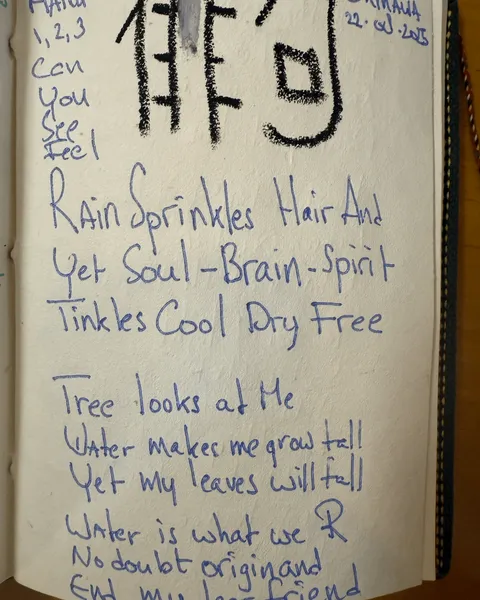 HAiku
1, 2, 3
Can
You
See
Feel
俳句
RAin Sprinkles Hair And
Yet Soul-Brain-Spirit
Tinkles Cool Dry Free
Tree looks at Me
WAter makes me grow tall
Yet my leaves will fall
WAter is what we R
No doubt origin and
End my dear friend